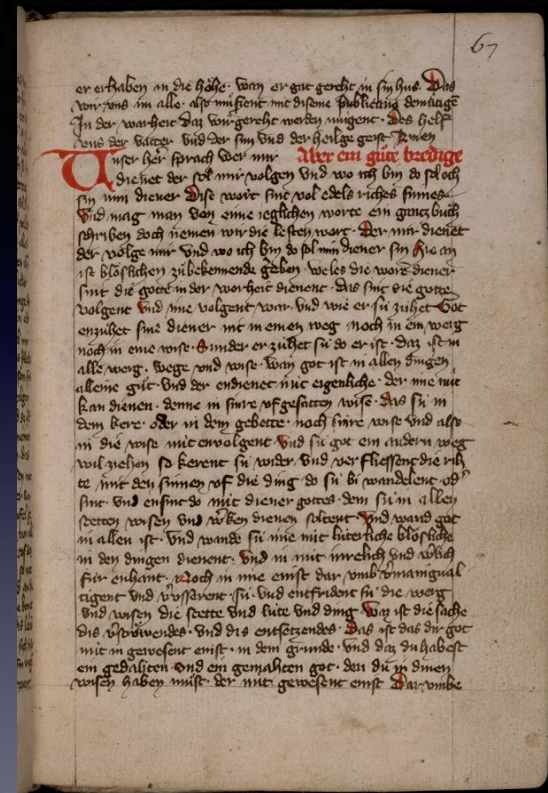 67
er erhaben in die höhe · wan er gat gereht in sin hus · Das
wir vns im alle · also müssent mit disene publicang demütige
In der warheit daz wir gereht werden mügent · Des helf
vns der vatter vnd der sun vnd der heilge geist Amen
Vnser her sprach wer mir Aber ein güte bredige
dienet der sol mir volgen vnd wo ich bin do sol och
sin min diener Dise wort sint vol edels riches sinnes
Vnd mag man von eime ieglichen worte ein gancz buch
schriben doch nemen wir die lesten wort · Der mir dienet
der volge mir vnd wo ich bin do sol min diener sin Hie an
ist blöslichen zü bekennende geben · weles die wore diener
sint die gotte in der worheit dienent · das sint die gotte
volgent vnd ime volgent war · vnd wie er sü zühet Got
enzühet sine diener nit in einen weg noch in ein werg
noch in eine wise · Sunder er zühet sü do er ist · daz ist in
alle werg · wege vnd wise · wan got ist in allen dingen
alleine güt · vnd der endienet nüt eigenliche · der ime nüt
kan dienen · denne in sinre vfgesatten wise · das sü in
dem kere · oder in dem gebette · noch sinre wise vnd also
in die wise nüt envolgent vnd sü got ein andern weg
wil ziehen so kerent sü wider · vnd verfliessent die rih
te mit den sinnen vf die ding · do sü bi wandelent · od'
sint · vnd ensint do nüt diener gottes · dem sü in allen
stetten wisen vnd dienen soltent · Vnd wand got
in allen ist · vnd wande sü ime nüt luterliche blösliche
in den dingen dienent · vnd in nüt inrelich vnd
für enhant · Noch in ime einist dar vmb vmanigual
tigent vnd sü · vnd entfrident sü die werg
vnd wisen die stette vnd lüte vnd ding Waz ist die sache
dis · vnd dis entsetzendes · Das ist das dir got
nüt in gewesent einist · in dem grunde · vnd daz du habest
ein gedahten vnd ein gemahten got · den du in dinen
wisen haben müst · der nüt gewesent einist Dar vmbe